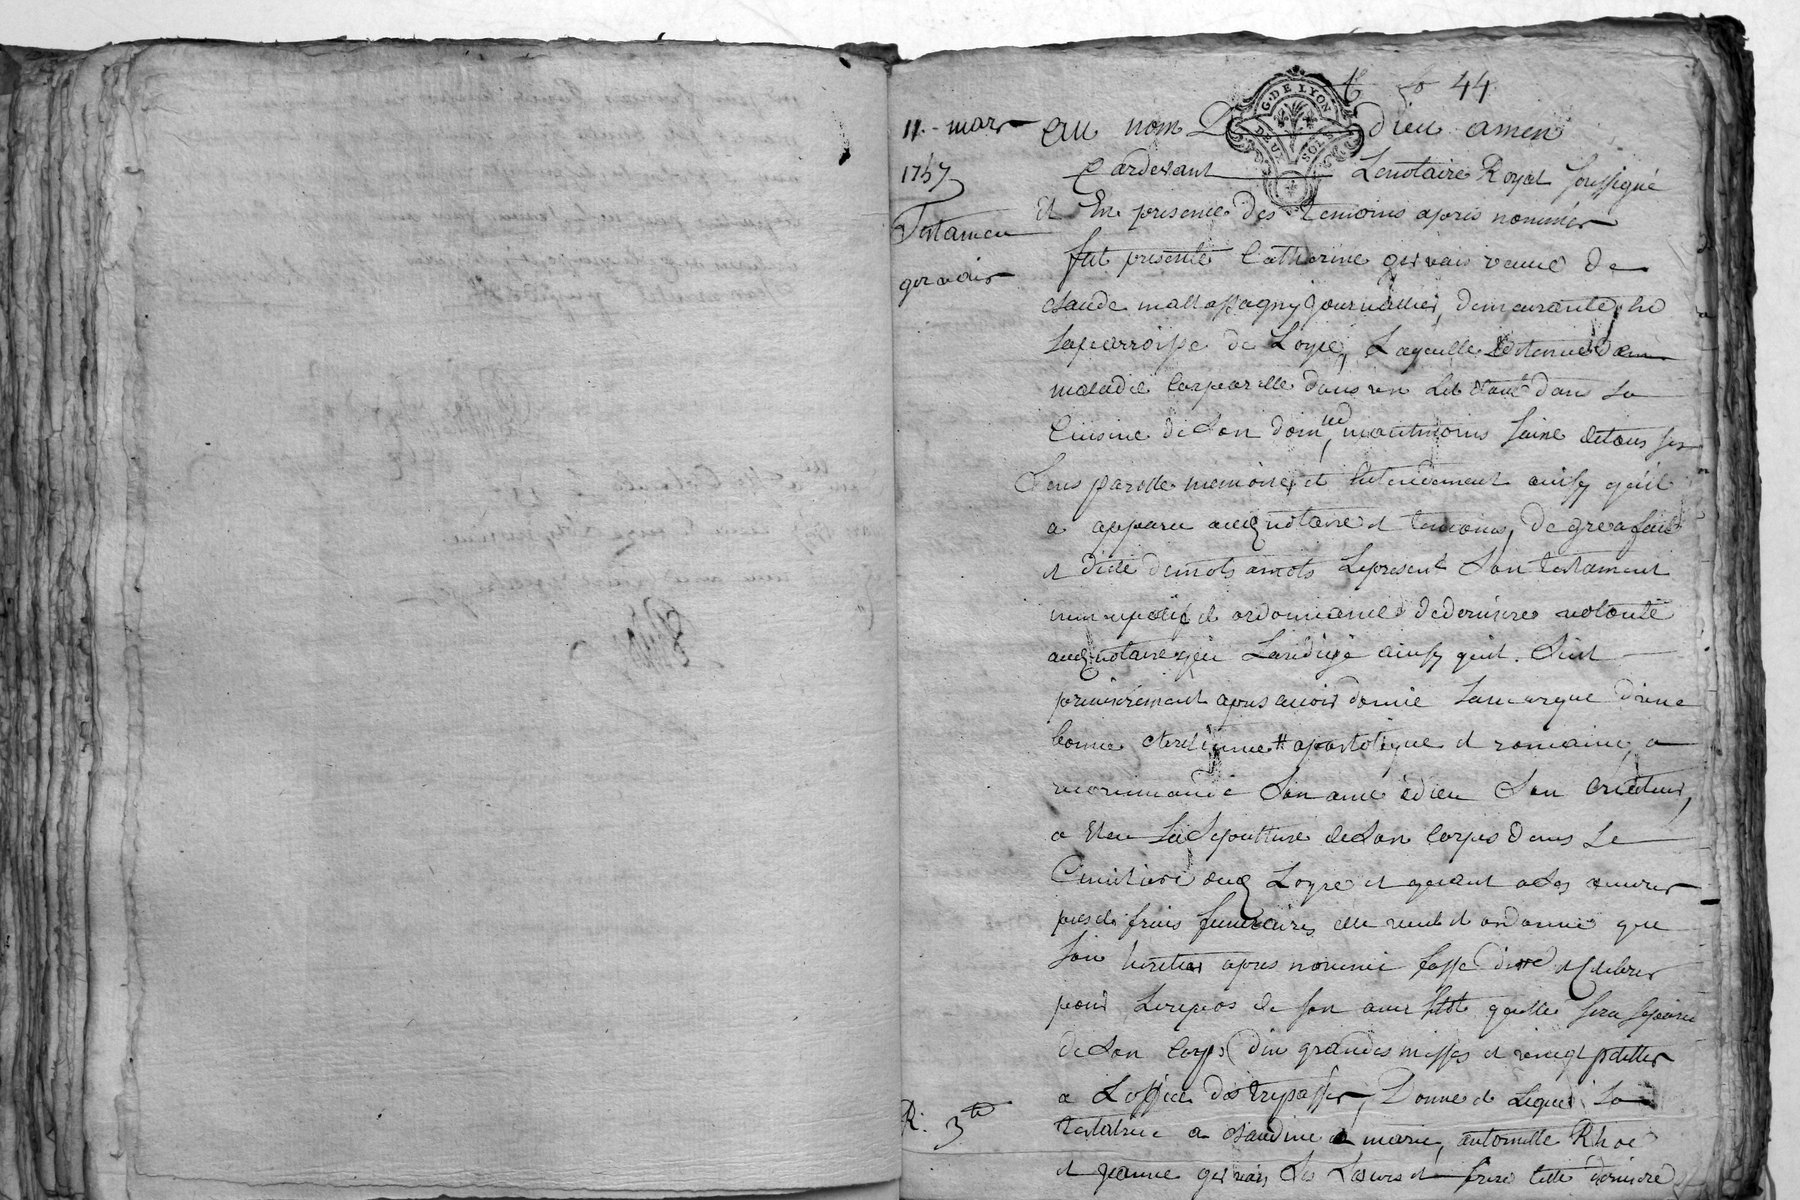 44
G. DE LYON
DEUX SOLS
11. mars
1757
Testamen
gervais
R. 3 tt
Au nom De dieu amen
Pardevant Lenotaire Royal soussigné
Et En presence des temoins apres nommés
fut presente Catherine gervais veuve de
claude mallassagny journallier, demeurante En
laparroisse de Loyre, Laquelle detenue de
maladie corporelle dans un Lit Etant dans la
Cuisine de Son dom.lle, neantmoins saine detous ses
Sens parolle memoire et Entendement ainsy quil
a apparu audt notaire et temoins, de gre a fait
et dicté demots amots Lepresent Son testament
nuncupatif et ordonnance dederniere volonté
audt notaire qui La redigé ainsy quil Suit
premierement apres avoir donné lamarque d'une
bonne chretienne # apostolique et romaine, a
recommandé Son ame adieu Son Createur,
a Eleu La Sepulture deSon Corps dans Le
Cimitiere dudt Loyre et quant a Ses œuvres
pies et frais funeraires elle veut et ordonne que
Son heritier apres nommé fasse dire et Celebrer
pour Lerepos de son ame sitot quelle sera separée
deSon Corps dix grandes messes et vingt petittes
a Loffice des trepassés, Donne et Legue La
testatrice a claudine et marie, antoinette
et jeanne gervais Ses Sœurs et frere cette derniere